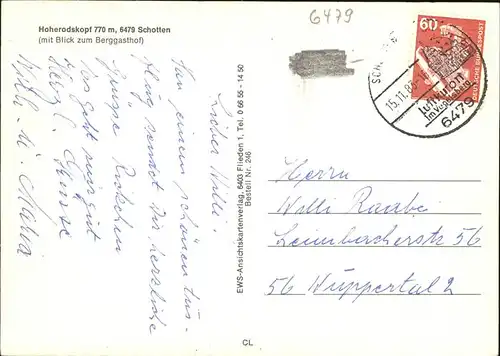 Hoherodskopf 770 m, 6479 Schotten
(mit Blick zum Berggasthof)
6479
60
DEUTSCHE BUNDESPOST
15.11.83
Luftkurort
im Vogelsberg
6479
Lieber Willi!
Von einem schönen Aus-
flug sendet Dir herzliche
Grüsse
Uns geht es gut
Herzl. Grüsse
Maria
EWS-Ansichtskartenverlag, 6403 Flieden 1, Tel. 0 66 55 - 14 50
Bestell Nr. 246
Herrn
Willi Raabe
Leimbacherstr. 56
56 Wuppertal 2
CL